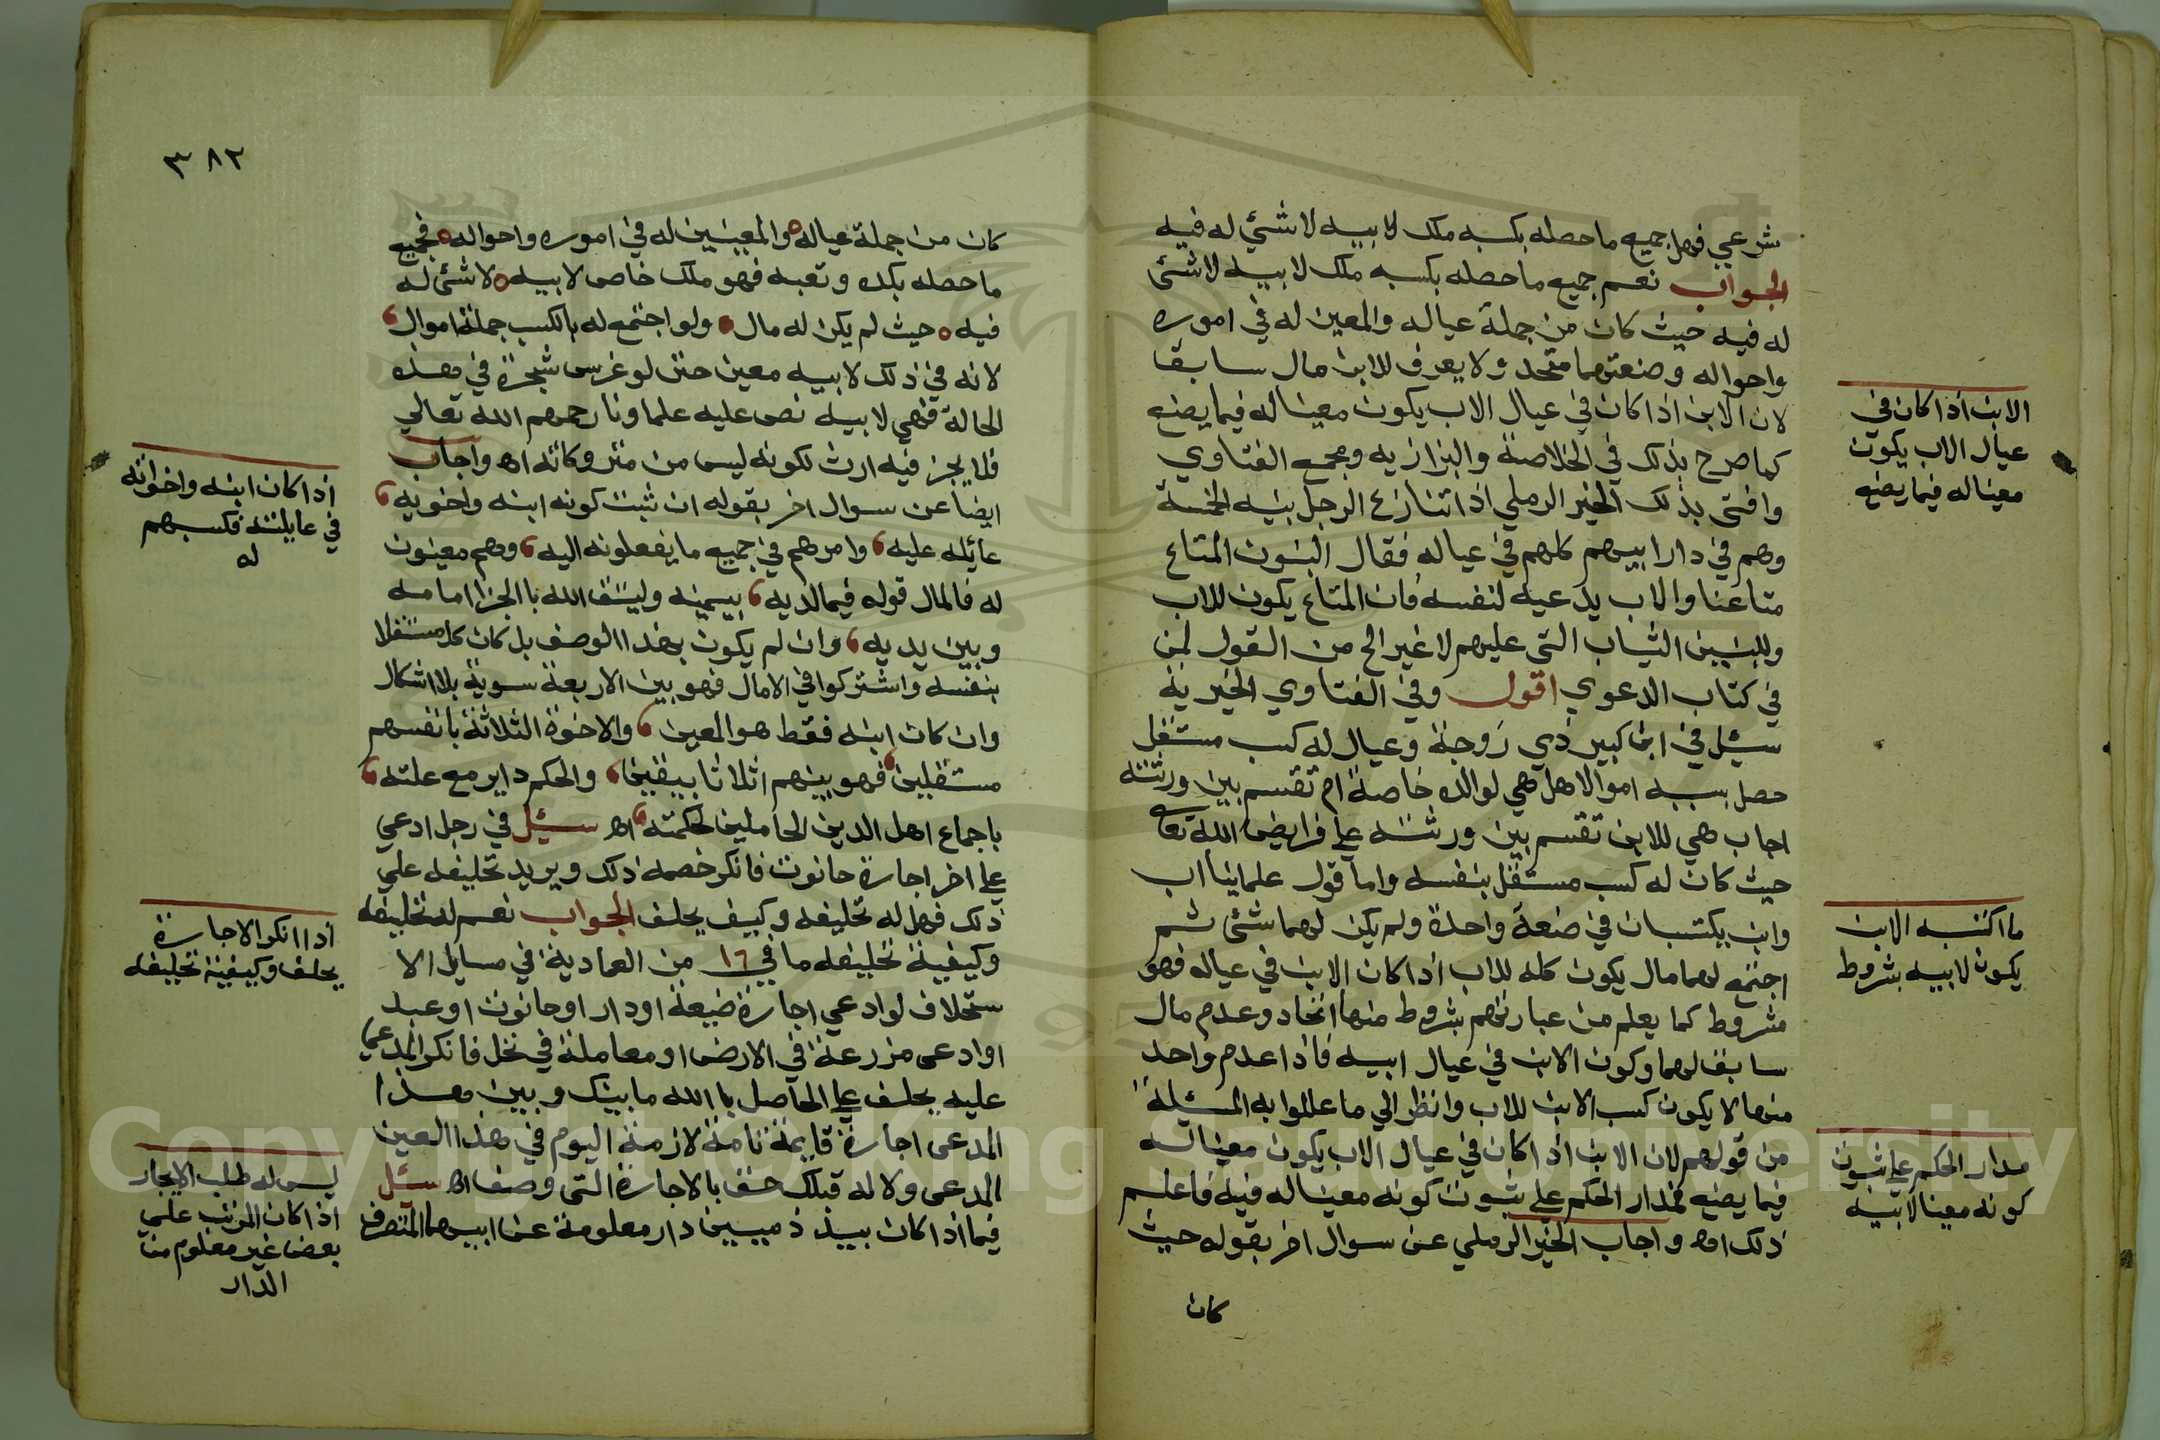 شرعي فهل جميع ما حصله بكسبه ملك لابيه لا شئي له فيه
الجواب نعم جميع ما حصله بكسبه ملك لابيه لا شئ
له فيه حيث كان من جملة عياله والمعين له في اموره
واحواله وصنعتهما متحد ولا يعرف للابن مال سابقا
لان الابن اذا كان في عيال الاب يكون معينا له فيما يصنع
كما صرح بذلك في الخلاصة والبزازيه ومجمع الفتاوي
وافتى بذلك الخير الرملي اذا تنازع الرجل بنيه الخمسة
وهم في دار ابيهم كلهم في عياله فقال البنون المتاع
متاعنا والاب يدعيه لنفسه فان المتاع يكون للاب
وللبنين الثياب التي عليهم لا غير الخ من القول لمن
في كتاب الدعوي اقول وفي الفتاوي الخيرية
سيئل في ابن كبير ذي زوجة وعيال له كسب مستقل
حصل بسببه اموالا هل هي لوالده خاصة ام تقسم بين ورثته
اجاب هي للابن تقسم بين ورثته علي فرايض الله تعالى
حيث كان له كسب مستقل بنفسه واما قول علماينا اب
وابن يكتسبان في صنعة واحدة ولم يكن لهما شئ ثم
اجتمع لهما مال يكون كله للاب اذا كان الابن في عياله فهو
مشروط كما يعلم من عبارتهم بشروط منها اتحاد وعدم مال
سابق لهما وكون الابن في عيال ابيه فاذا عدم واحد
منها لا يكون كسب الابن للاب وانظر الي ما عللوا به المسئيلة
من قولهم لان الابن اذا كان في عيال الاب يكون معينا له
فيما يصنع فمدار الحكم علي ثبوت كونه معينا له فيه فاعلم
ذلك اه واجاب الخير الرملي عن سوال اخر بقوله حيث
كان
الابن اذا كان في
عيال الاب يكون
معينا له فيما يصنع
ما اكتسبه الابن
يكون لابيه بشروط
مدار الحكم علي ثبوت
كونه معينا لابيه
٣٨٢
كان من جملة عياله والمعينين له في اموره واحواله فجميع
ما حصله بكده وتعبه فهو ملك خاص لابيه لا شئ له
فيه حيث لم يكن له مال ولو اجتمع له بالكسب جملة اموال
لانه في ذلك لابيه معين حتى لو غرس شجرة في هذه
الحالة فهي لابيه نص عليه علماونا رحمهم الله تعالي
فلا يجز فيه ارث لكونه ليس من متروكاته اه واجاب
ايضا عن سوال اخر بقوله ان ثبت كونه ابنه واخويه
عائله عليه وامرهم في جميع ما يفعلونه اليه وهم معينون
له فالمال قوله فيما لديه بيمينه وليتق الله بالجزا امامه
وبين يديه وان لم يكون بهذا الوصف بل كان كل مستقلا
بنفسه واشتركوا في الامال فهو بين الاربعة سوية بلا اشكال
وان كان ابنه فقط هو المعين والاخوة الثلاثة بانفسهم
مستقلين فهو بينهم اثلاثا بيقين والحكم داير مع علته
باجماع اهل الدين الحاملين لحكمته اه سيئل في رجل ادعي
علي اخر اجارة حانوت فانكر خصمه ذلك ويريد تحليفه علي
ذلك فهل له تحليفه وكيف يحلف الجواب نعم له تحليفه
وكيفية تحليفه ما في ١٦ من العمادية في مسايل الا
ستحلاف لو ادعي اجارة ضيعة او دار او حانوت او عبد
او ادعى مزرعة في الارض او معاملة في نخل فانكر المدعي
عليه يحلف علي الحاصل باالله ما بينك وبين هذا
المدعى اجارة قايمة تامة لازمة اليوم في هذا العين
المدعى ولا له قبلك حق بالاجارة التي وصف اه سيئل
فيما اذا كان بيد ذميين دار معلومة عن ابيهما المتصرف
اذا كان ابنه واخوانه
في عايلته فكسبهم
له
اذا انكر الاجارة
يحلف وكيفية تحليفه
ليس له طلب الايجار
اذا كان المرتب علي
بعض غير معلوم من
الدار
Copyright © King Saud University